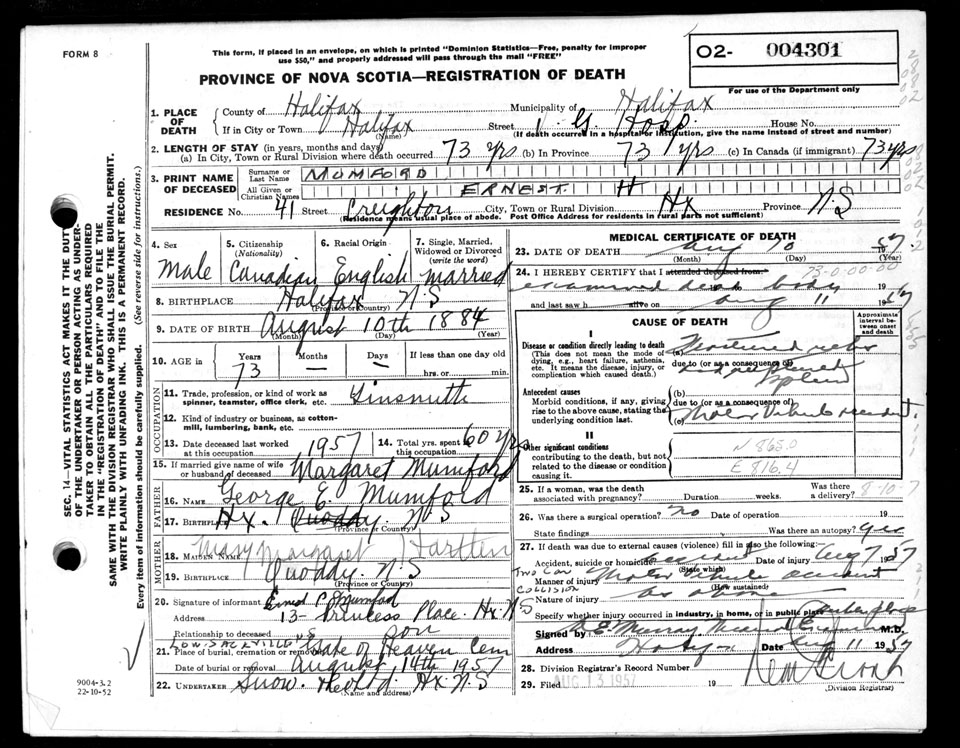 FORM 8
This form, if placed in an envelope, on which is printed "Dominion Statistics—Free, penalty for improper
use $50," and properly addressed will pass through the mail "FREE"
PROVINCE OF NOVA SCOTIA—REGISTRATION OF DEATH
O2- 004301
For use of the Department only
1. PLACE OF DEATH
County of Halifax Municipality of Halifax
If in City or Town Halifax Street V. G. Hosp. House No.
(Name) (If death occurred in a hospital or institution, give the name instead of street and number)
2. LENGTH OF STAY (in years, months and days)
(a) In City, Town or Rural Division where death occurred 73 yrs (b) In Province 73 yrs (c) In Canada (if immigrant) 73 yrs
3. PRINT NAME OF DECEASED
Surname or Last Name MUMFORD
All Given or Christian Names ERNEST H
RESIDENCE No. 41 Street Creighton City, Town or Rural Division Hx Province N.S
(Residence means usual place of abode. Post Office Address for residents in rural parts not sufficient)
4. Sex Male
5. Citizenship (Nationality) Canadian
6. Racial Origin English
7. Single, Married, Widowed or Divorced (write the word) married
8. BIRTHPLACE Halifax N.S
(Province or Country)
9. DATE OF BIRTH August 10th 1884
(Month) (Day) (Year)
10. AGE in Years Months Days If less than one day old
73 — — hrs. or min.
OCCUPATION
11. Trade, profession, or kind of work as spinner, teamster, office clerk, etc. Tinsmith
12. Kind of industry or business, as cotton-mill, lumbering, bank, etc.
13. Date deceased last worked at this occupation 1957
14. Total yrs. spent in this occupation 60 yrs
15. If married give name of wife or husband of deceased Margaret Mumford
FATHER
16. NAME George E. Mumford
17. BIRTHPLACE Hx. Quoddy. N.S
(Province or Country)
MOTHER
18. MAIDEN NAME Mary Margaret
19. BIRTHPLACE Quoddy N.S
(Province or Country)
20. Signature of informant Mumford
Address 13 Place Hx. N S
Relationship to deceased Son
21. Place of burial, cremation or removal Gate of Heaven Cem
Date of burial or removal August 14th 1957
22. UNDERTAKER Snow. Hx N.S
(Name and address)
MEDICAL CERTIFICATE OF DEATH
23. DATE OF DEATH Aug 10 57
(Month) (Day) (Year)
24. I HEREBY CERTIFY that I attended deceased from: 73-0-00-00
examined dead body 19
and last saw h alive on Aug 11 1957
CAUSE OF DEATH
Approximate interval between onset and death
I
Disease or condition directly leading to death
(This does not mean the mode of dying, e.g., heart failure, asthenia, etc. It means the disease, injury, or complication which caused death.)
(a)
due to (or as a consequence of)
spleen
Antecedent causes
Morbid conditions, if any, giving rise to the above cause, stating the underlying condition last.
(b)
due to (or as a consequence of)
(c) Motor Vehicle accident.
II
Other significant conditions
contributing to the death, but not related to the disease or condition causing it.
N 865.0
E 816.4
25. If a woman, was the death associated with pregnancy? Duration weeks. Was there a delivery? 8-10-7
26. Was there a surgical operation? no Date of operation 19
State findings Was there an autopsy? yes
27. If death was due to external causes (violence) fill in also the following:
Accident, suicide or homicide? accident Date of injury Aug 7 1957
(State which)
TWO CAR COLLISION
Manner of injury Motor Vehicle accident
(How sustained)
Nature of injury as above
Specify whether injury occurred in industry, in home, or in public place
Signed by Murray Medical Examiner M.D.
Address Halifax Date Aug 11 1957
28. Division Registrar's Record Number
29. Filed AUG 13 1957 19
(Division Registrar)
SEC. 14—VITAL STATISTICS ACT MAKES IT THE DUTY
OF THE UNDERTAKER OR PERSON ACTING AS UNDER-
TAKER TO OBTAIN ALL THE PARTICULARS REQUIRED
IN THE "REGISTRATION OF DEATH" AND TO FILE THE
SAME WITH THE DIVISION REGISTRAR WHO SHALL ISSUE THE BURIAL PERMIT.
WRITE PLAINLY WITH UNFADING INK. THIS IS A PERMANENT RECORD.
Every item of information should be carefully supplied. (See reverse side for instructions.)
9004-3.2
22-10-52